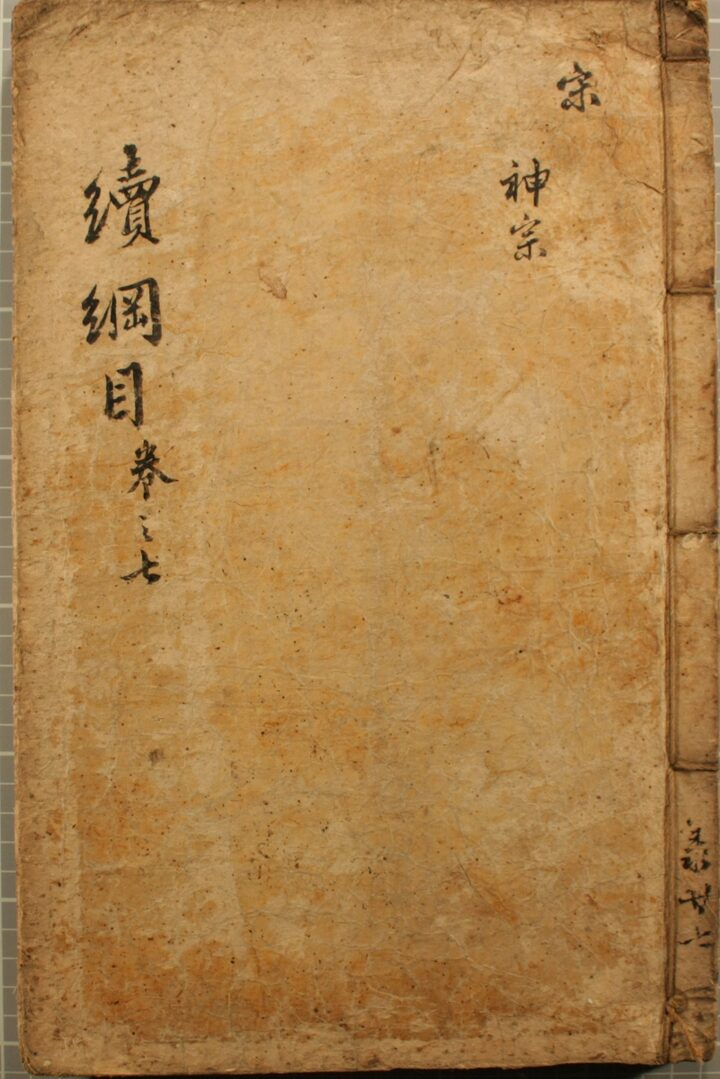 宋
神宗
續綱目卷之七